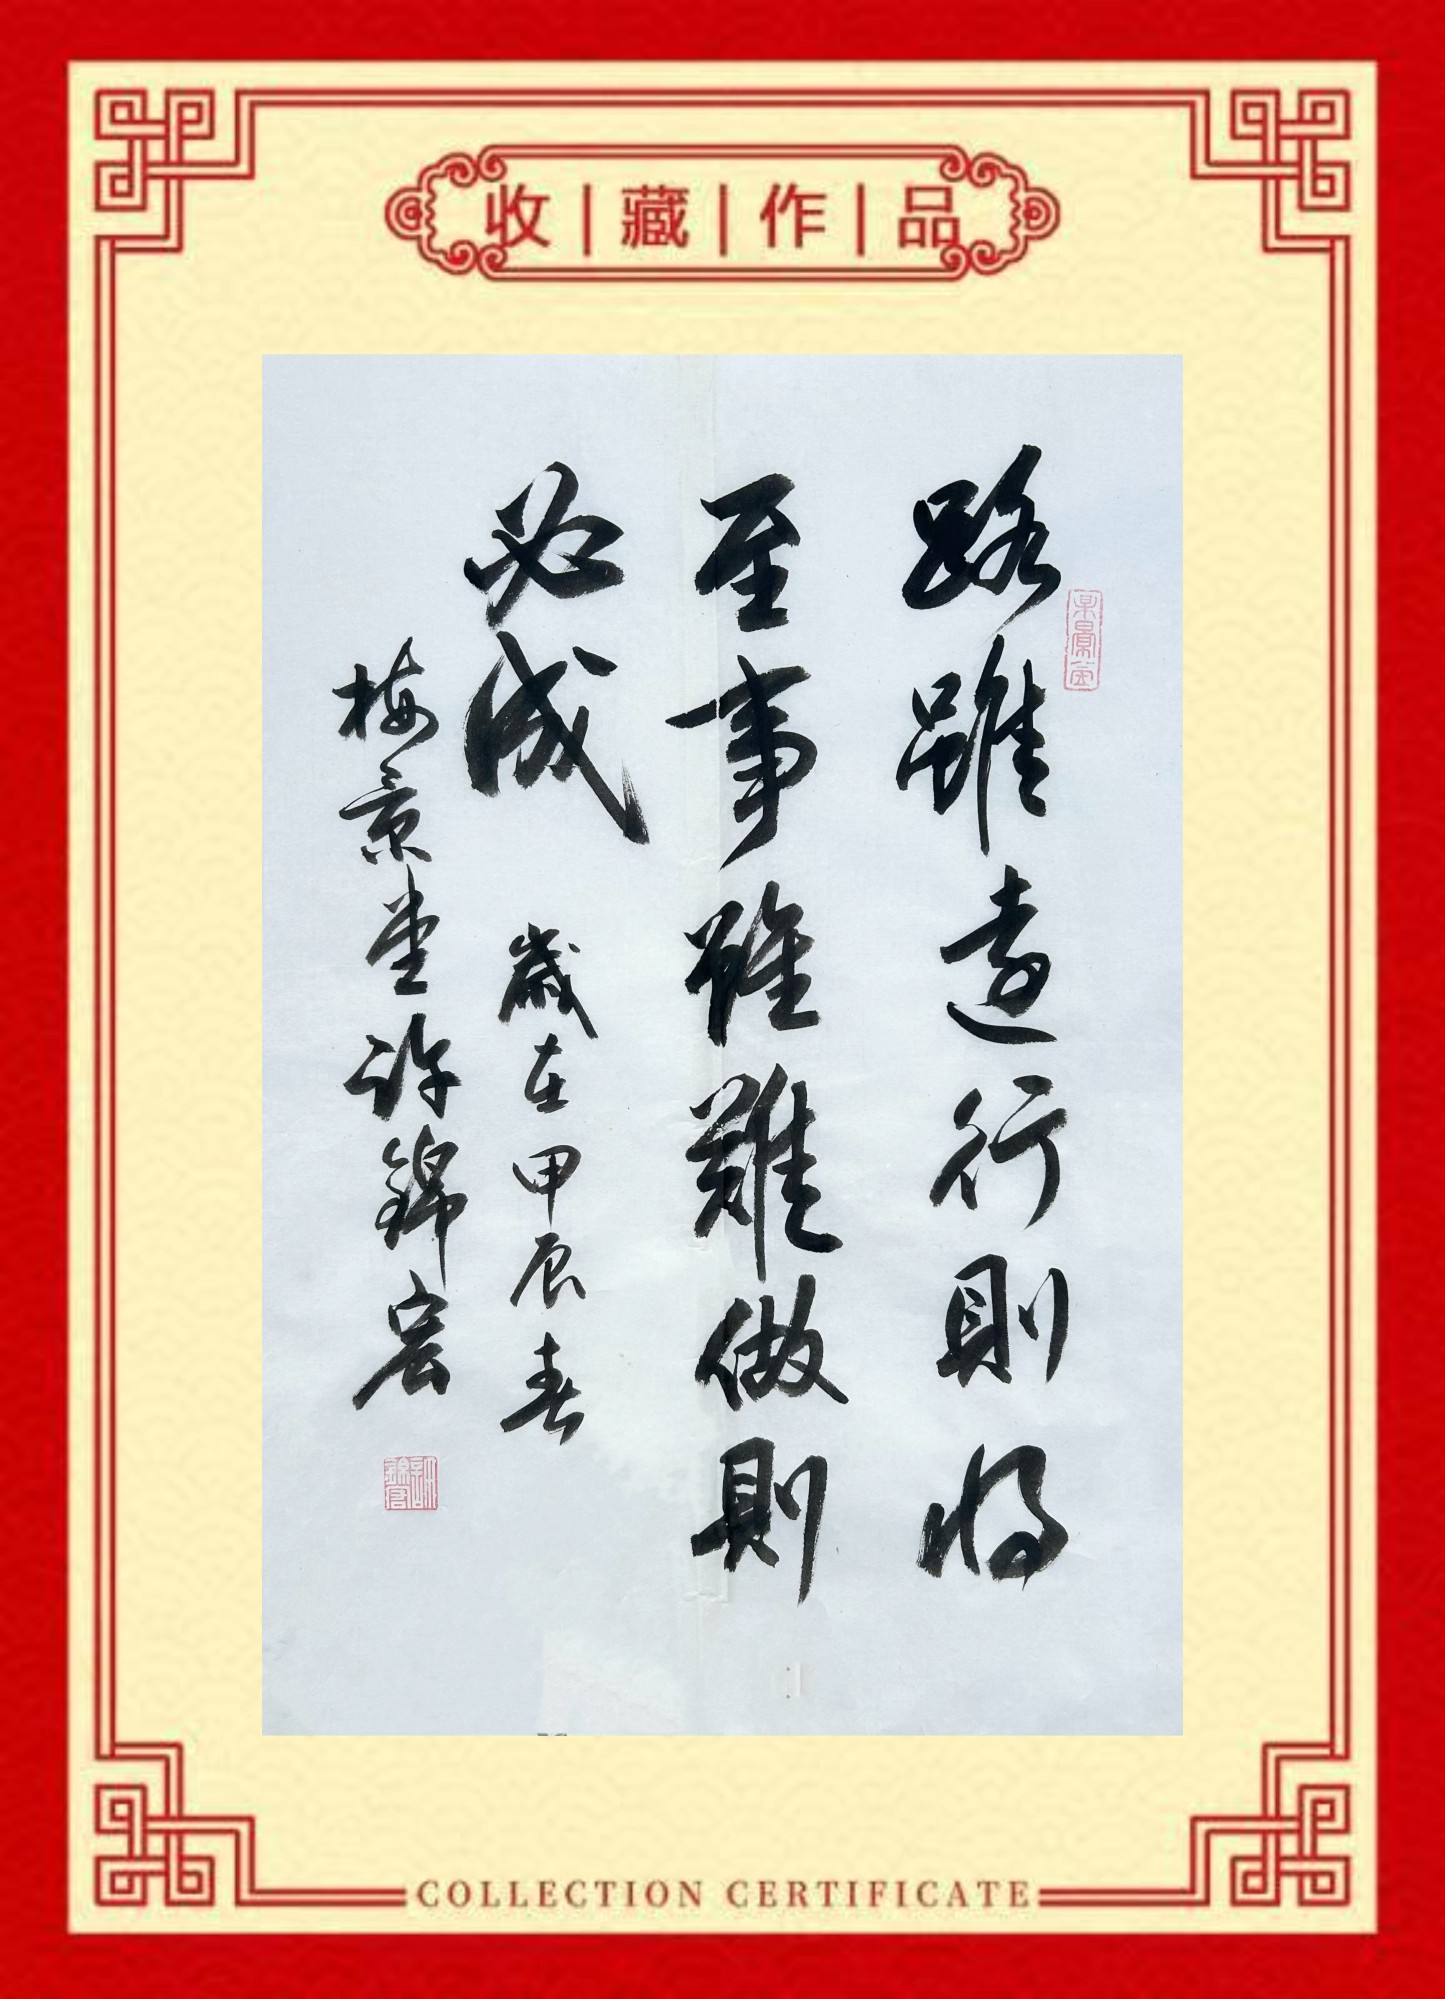 收|藏|作|品
路雖遠行則將
至事雖難做則
必成
歲在甲辰春
梅景堂許錦宏
COLLECTION CERTIFICATE